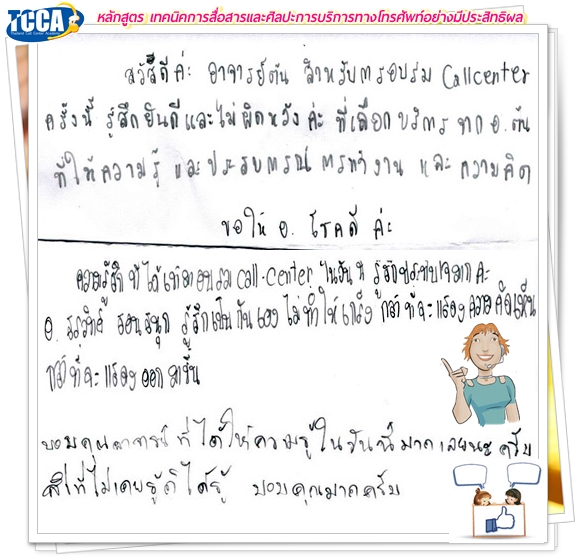 TCCA
Thailand Call Center Academy
หลักสูตร เทคนิคการสื่อสารและศิลปะการบริการทางโทรศัพท์อย่างมีประสิทธิผล
สวัสดีค่ะ อาจารย์ต้น สำหรับการอบรม Callcenter
ครั้งนี้ รู้สึกยินดีและไม่ผิดหวัง ค่ะ ที่เลือกบริการ จาก อ.ต้น
ที่ให้ความรู้ และประสบการณ์ การทำงาน และ ความคิด
ขอให้ อ. โชคดี ค่ะ
ความรู้สึก ที่ได้เข้าอบรม call-center ในวันนี้ รู้สึกประทับใจมาก ค่ะ
อ. สอนสนุก รู้สึกเป็นกันเอง ไม่ทำให้เกร็ง กล้าที่จะแสดงความคิดเห็น
กล้าที่จะแสดงออกมากขึ้น
ขอบคุณอาจารย์ที่ได้ให้ความรู้ในวันนี้มากเลยนะครับ
สิ่งที่ไม่เคยรู้ก็ได้รู้ ขอบคุณมากครับ